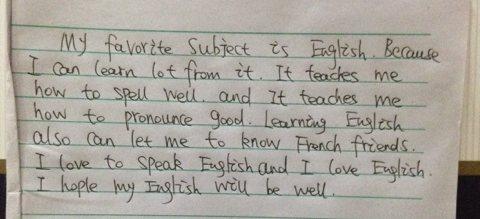 My favorite Subject is English. Because
I can learn lot from it. It teaches me
how to spell well. and It teaches me
how to pronounce good. Learning English
also can let me to know French friends.
I love to speak English and I love English.
I hople my English will be well.